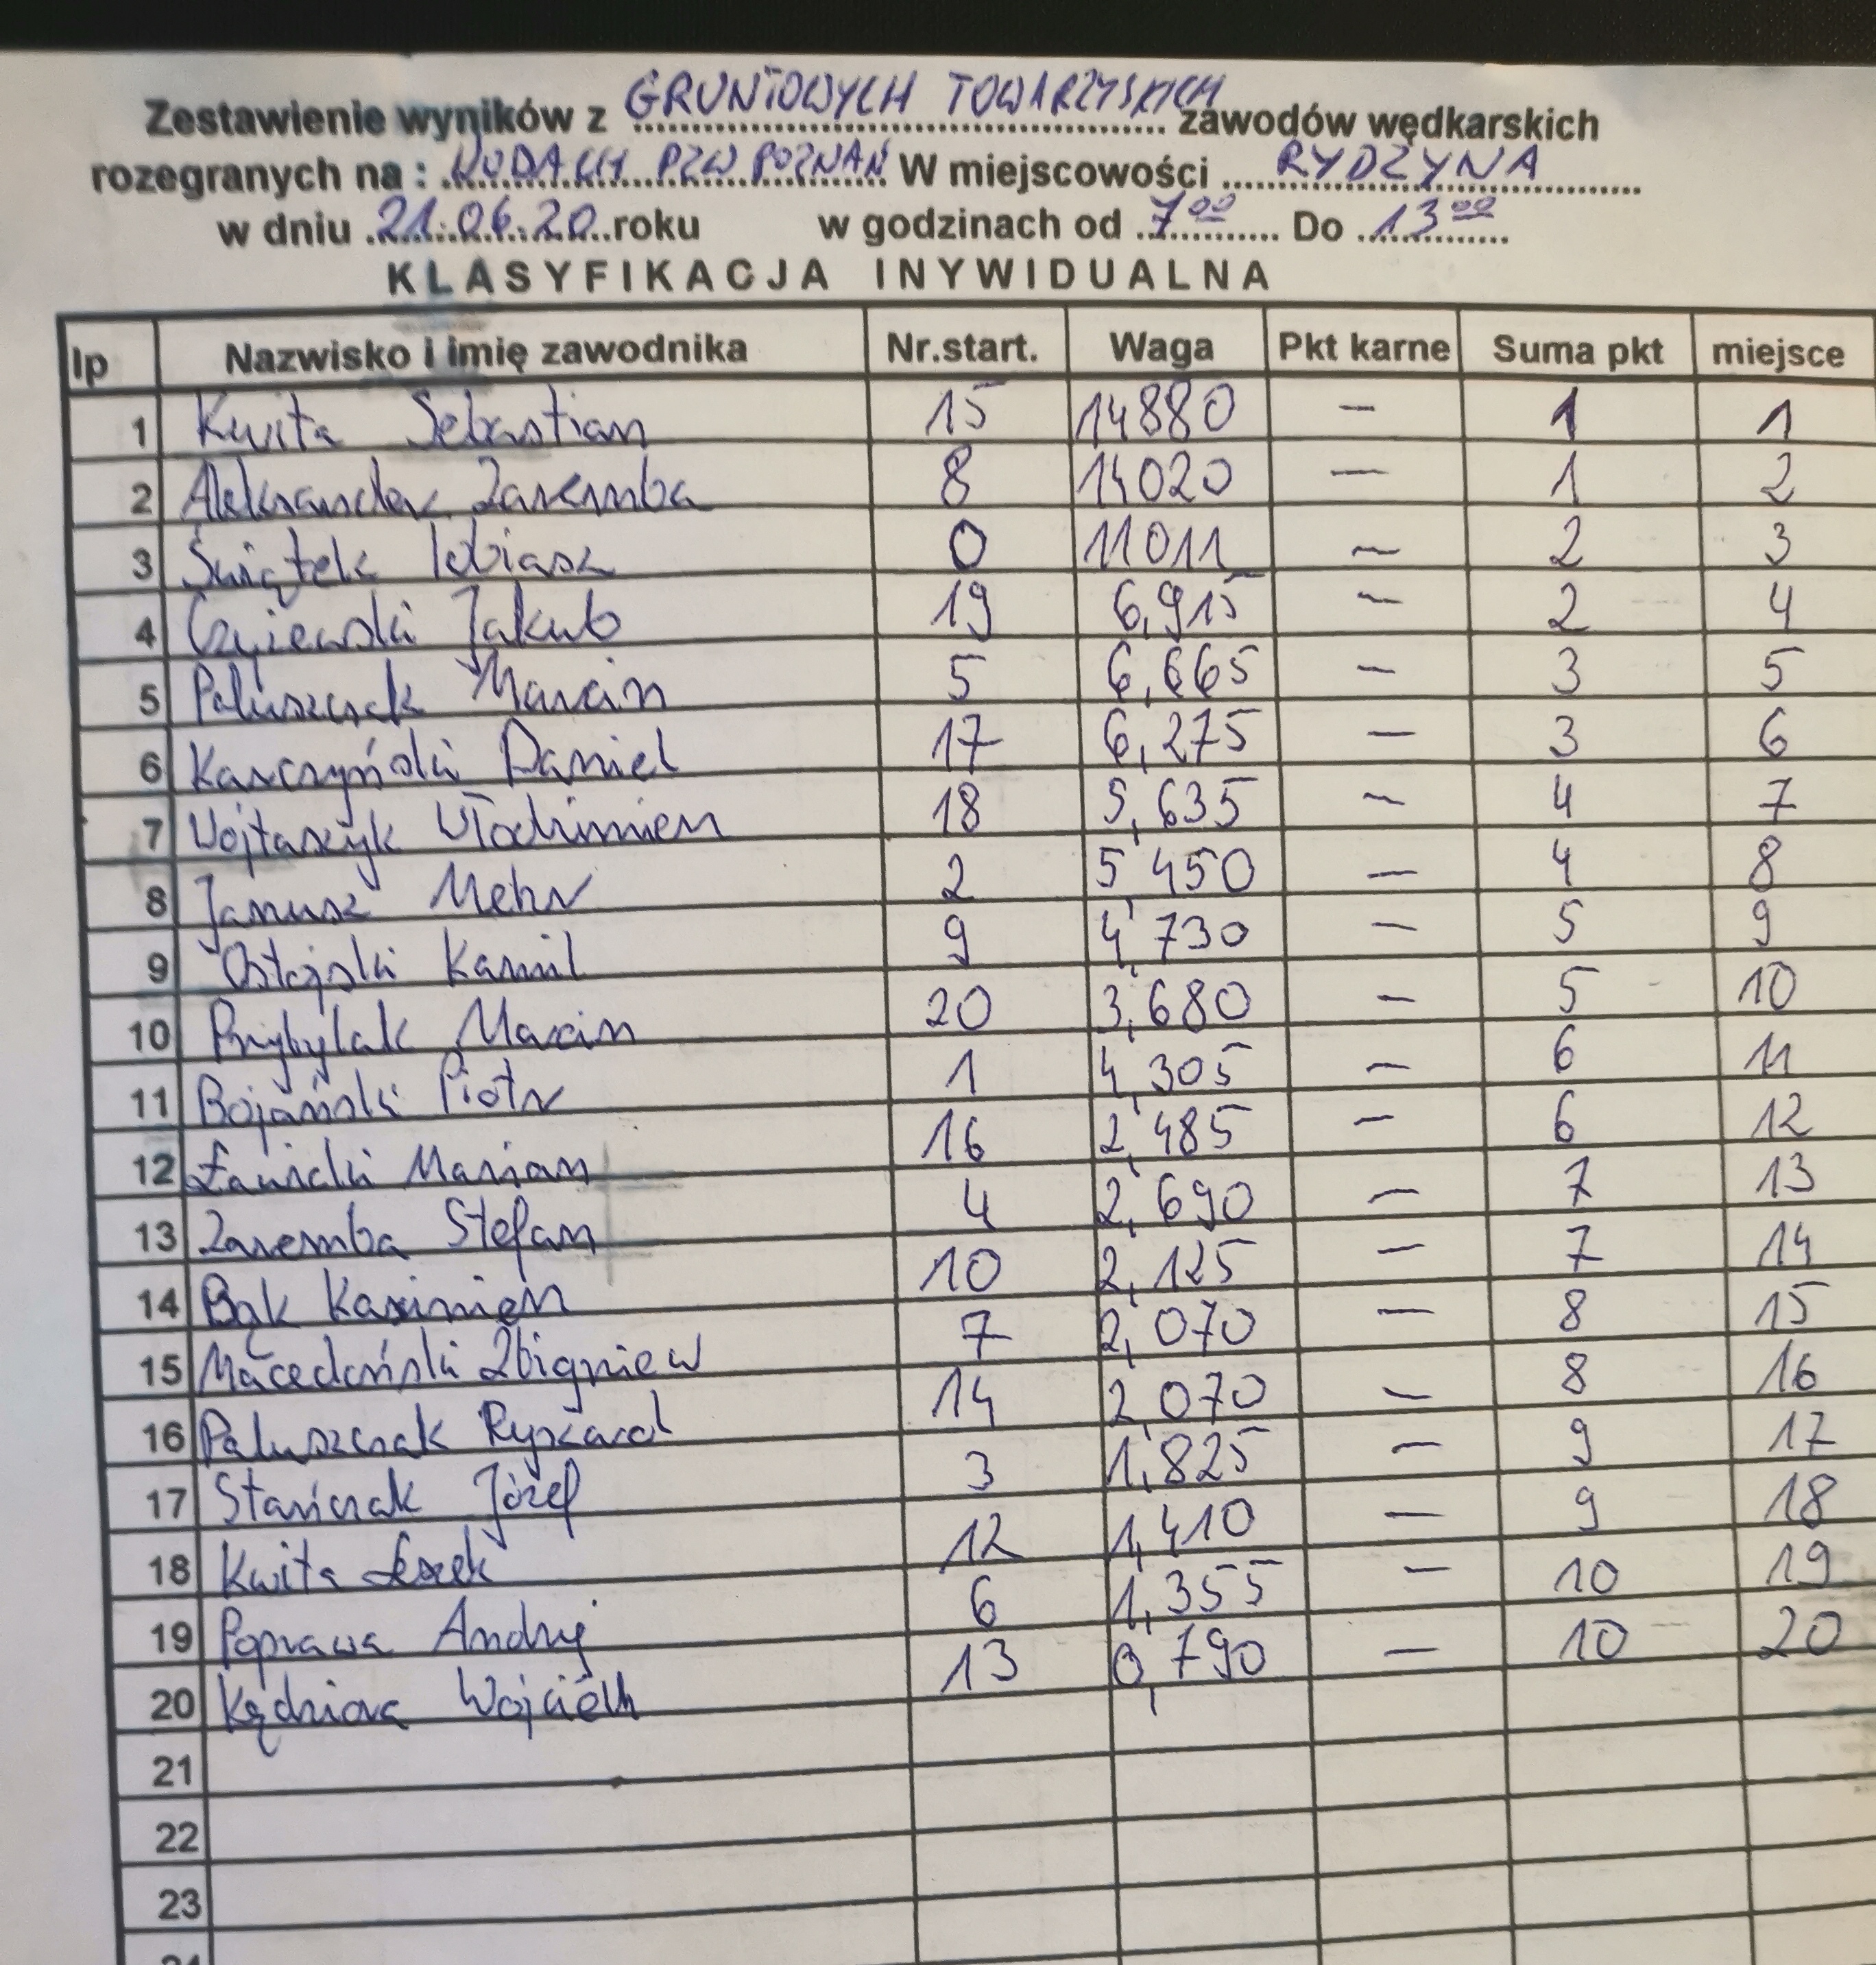 Zestawienie wyników z GRUNTOWYCH TOWARZYSKICH zawodów wędkarskich
rozegranych na : WODACH PZW POZNAŃ W miejscowości RYDZYNA
w dniu 21.06.20 roku w godzinach od 7⁰⁰ Do 13⁰⁰
KLASYFIKACJA INYWIDUALNA
lp Nazwisko i imię zawodnika Nr.start. Waga Pkt karne Suma pkt miejsce
1 Kwita Sebastian 15 14880 — 1 1
2 Aleksander Zaremba 8 14020 — 1 2
3 Świątek Tobiasz 0 11011 — 2 3
4 Czyjewski Jakub 19 6,915 — 2 4
5 Paluszczak Marcin 5 6,665 — 3 5
6 Karczyński Daniel 17 6,275 — 3 6
7 Wojtaszyk Włodzimierz 18 5,635 — 4 7
8 Janusz Mehr 2 5,450 — 4 8
9 Ostojski Kamil 9 4,730 — 5 9
10 Przybylak Marcin 20 3,680 — 5 10
11 Bojański Piotr 1 4,305 — 6 11
12 Ławicki Marian 16 2,485 — 6 12
13 Zaremba Stefan 4 2,690 — 7 13
14 Bąk Kazimierz 10 2,125 — 7 14
15 Macedoński Zbigniew 7 2,070 — 8 15
16 Paluszczak Ryszard 14 2,070 — 8 16
17 Stańczak Józef 3 1,825 — 9 17
18 Kwita Leszek 12 1,410 — 9 18
19 Poprawa Andrzej 6 1,355 — 10 19
20 Kędziora Wojciech 13 0,790 — 10 20
21
22
23